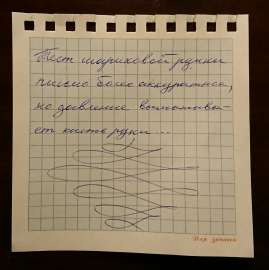 Тест шариковой ручки
письмо более аккуратное,
но давление выматыва-
ет кисть руки...
Для записи